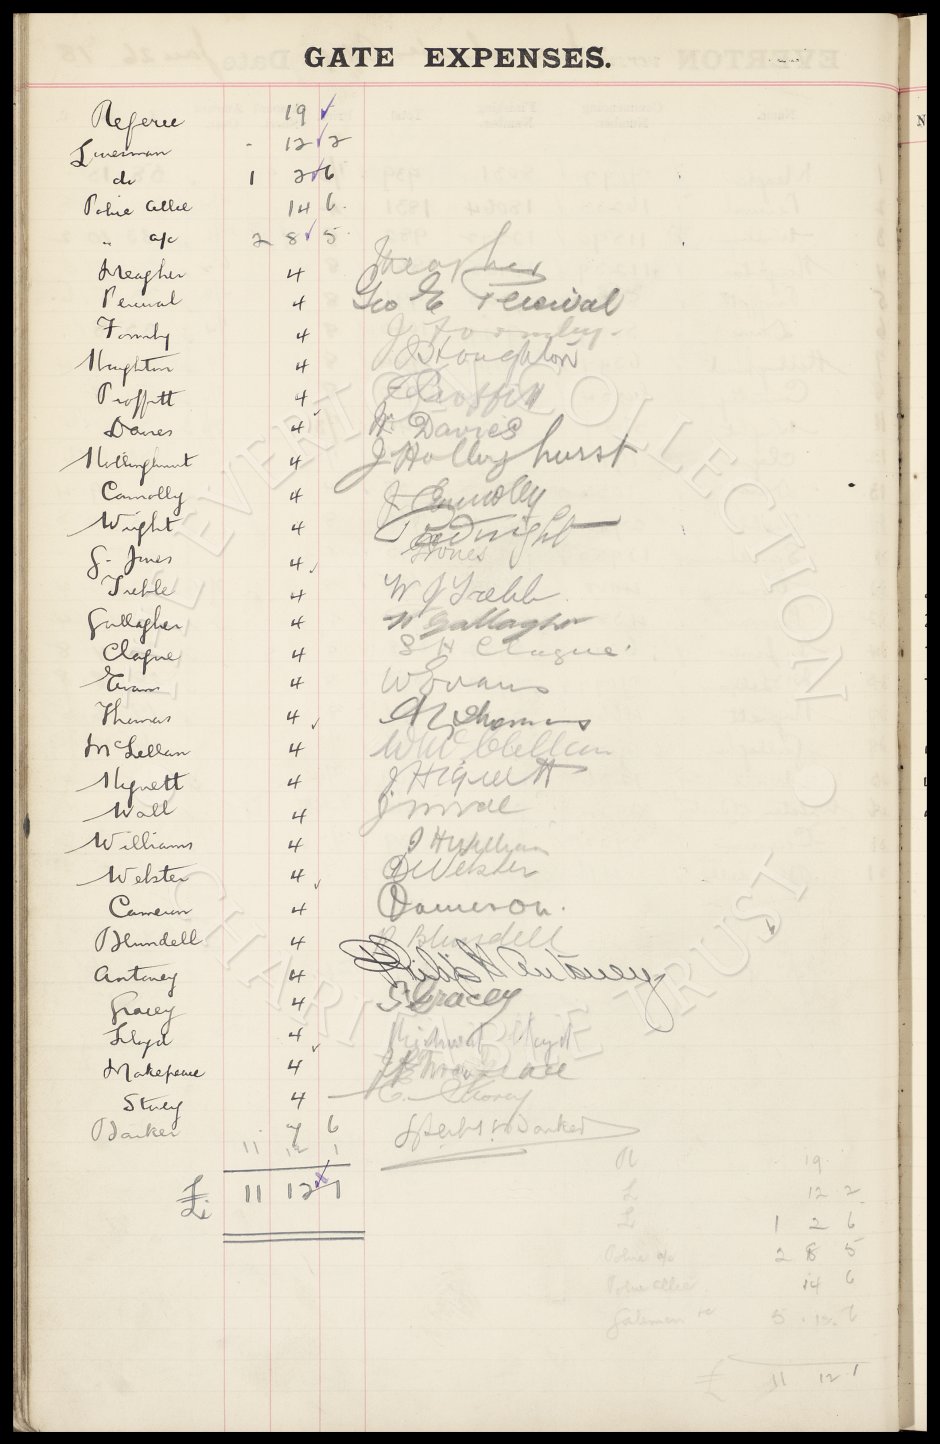 GATE EXPENSES.
Referee 19
Linesman - 12 2
do 1 2 6
Police Allce 14 6
" a/c 2 8 5
Meagher 4 Meagher
Percival 4 Geo E Percival
Formby 4 J Formby
Houghton 4 J Houghton
Proffitt 4 Proffitt
Davies 4 Davies
Hollinghurst 4 J Hollinghurst
Connolly 4 J Connolly
Wright 4 Wright
G. Jones 4 Jones
Treble 4 W J Trebb
Gallagher 4 Gallagher
Clague 4 S H Clague
Evans 4 W Evans
Thomas 4 Thomas
McLellan 4 W McClellan
Hignett 4 J Hignett
Wall 4
Williams 4
Webster 4 Webster
Cameron 4 Cameron.
Blundell 4 Blundell
Antoney 4 Philip H Antoney
Gracey 4 S Gracey
Lloyd 4 Lloyd
Makepeace 4
Storey 4 Storey
Barker 7 6 Barker
11 12 1
£ 11 12 1
R 19
L 12 2
L 1 2 6
Police a/c 2 8 5
Police Allce 14 6
Gatemen &c 5 . 15. 6
£ 11 12 1
THE EVERTON COLLECTION CHARITABLE TRUST ©